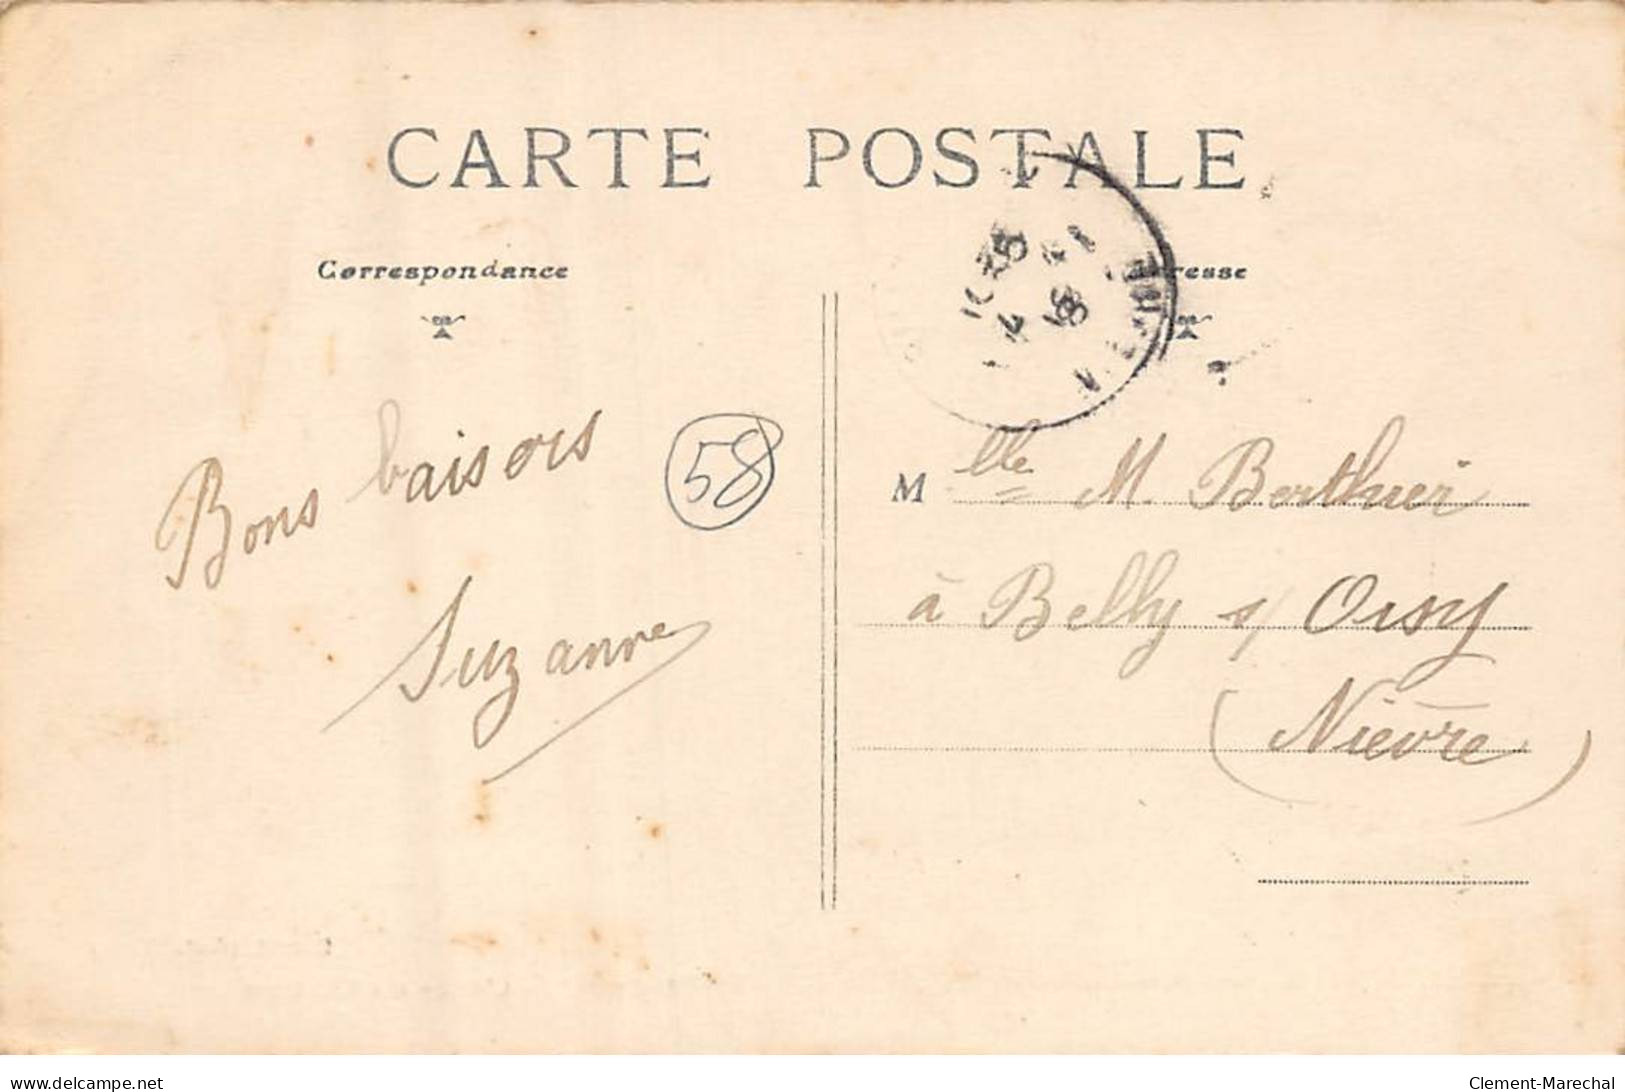 CARTE POSTALE
Correspondance
resse
Bons baisers
58
Suzanne
M lle M. Berthier
à Belly s/ Oisy
(Nièvre)
www.delcampe.net
Clement-Marechal